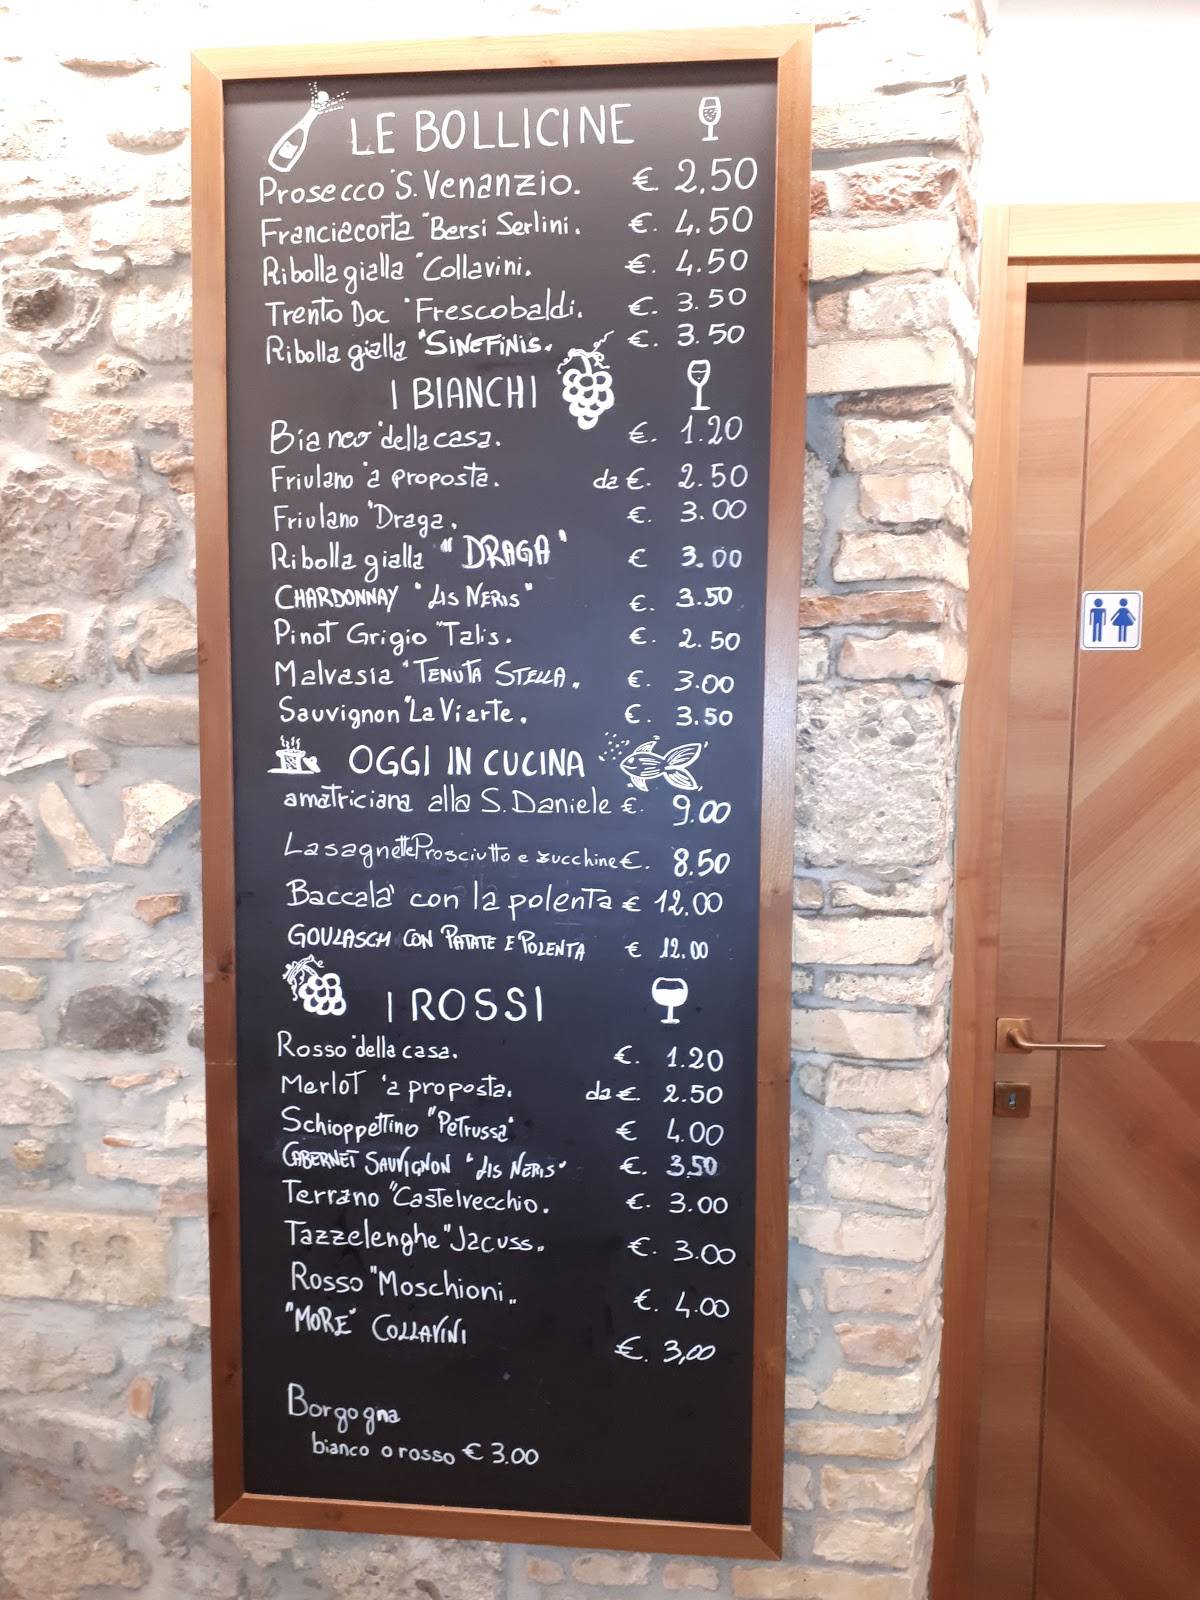 LE BOLLICINE
Prosecco "S. Venanzio. € 2,50
Franciacorta "Bersi Serlini. €. 4.50
Ribolla gialla "Collavini. €. 4.50
Trento Doc "Frescobaldi. €. 3.50
Ribolla gialla "SINEFINIS. €. 3.50
I BIANCHI
Bianco "della casa. €. 1.20
Friulano "a proposta. da €. 2.50
Friulano "Draga. €. 3.00
Ribolla gialla "DRAGA" € 3.00
CHARDONNAY "LIS NERIS" €. 3.50
Pinot Grigio "Talis. €. 2.50
Malvasia "TENUTA STELLA. €. 3.00
Sauvignon "La Viarte. €. 3.50
OGGI IN CUCINA
amatriciana alla S. Daniele €. 9.00
Lasagnette Prosciutto e zucchine €. 8.50
Baccala' con la polenta € 12.00
GOULASCH CON PATATE E POLENTA € 12.00
I ROSSI
Rosso "della casa. €. 1.20
Merlot "a proposta. da €. 2.50
Schioppettino "Petrussa" € 4.00
CABERNET SAUVIGNON "LIS NERIS" €. 3,50
Terrano "Castelvecchio. €. 3.00
Tazzelenghe "Jacuss" €. 3.00
Rosso "Moschioni" €. 4.00
"MORE" COLLAVINI €. 3,00
Borgogna
bianco o rosso € 3.00